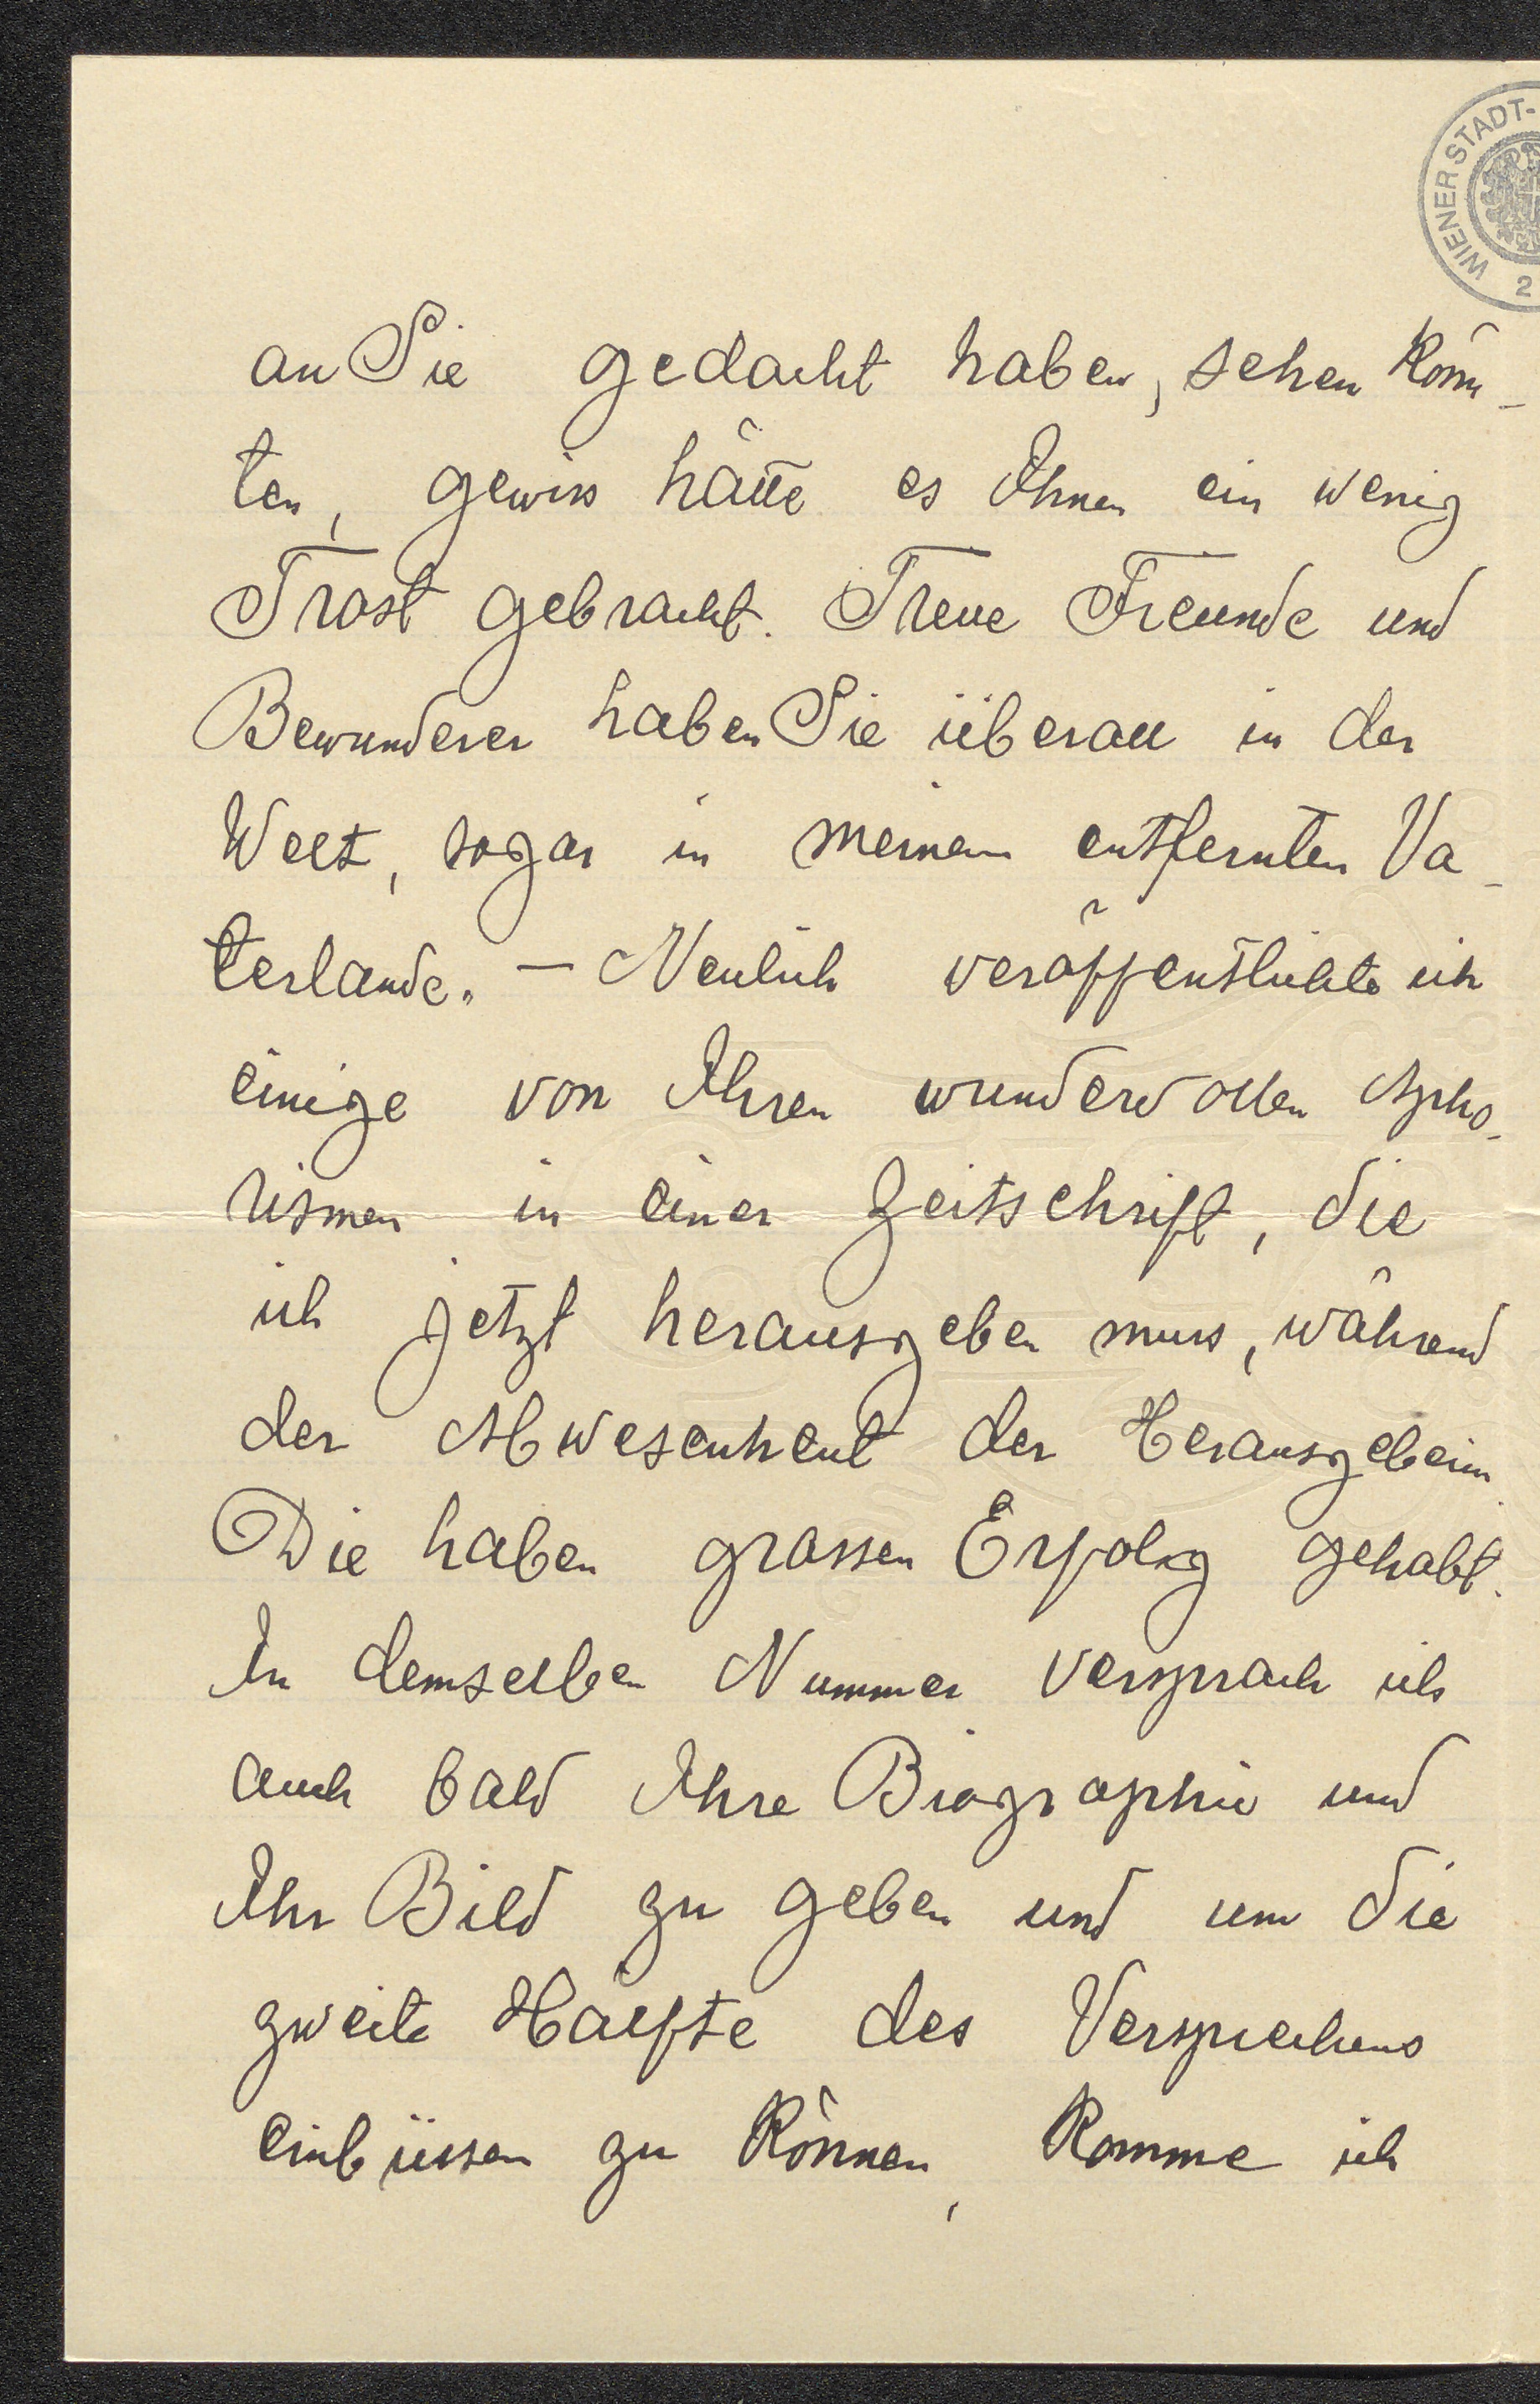 WIENER STADT-
2
an Sie gedacht haben, sehen könn-
ten, gewiss hätte es Ihnen ein wenig
Trost gebracht. Treue Freunde und
Bewunderer haben Sie überall in der
Welt, sogar in meinem entfernten Va-
terlande. — Neulich veröffentlichte ich
einige von Ihren wundervollen Apho-
rismen in einer Zeitschrift, die
ich jetzt herausgeben muss, während
der Abwesenheit der Herausgeberin.
Die haben grossen Erfolg gehabt.
In demselben Nummer versprach ich
auch bald Ihre Biographie und
Ihr Bild zu geben und um die
zweite Hälfte des Versprechens
einbüssen zu können, komme ich